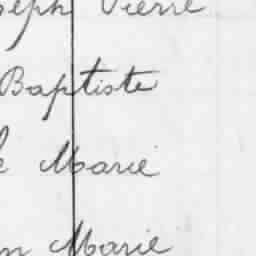 seph Pierre
Baptiste
Marie
n Marie